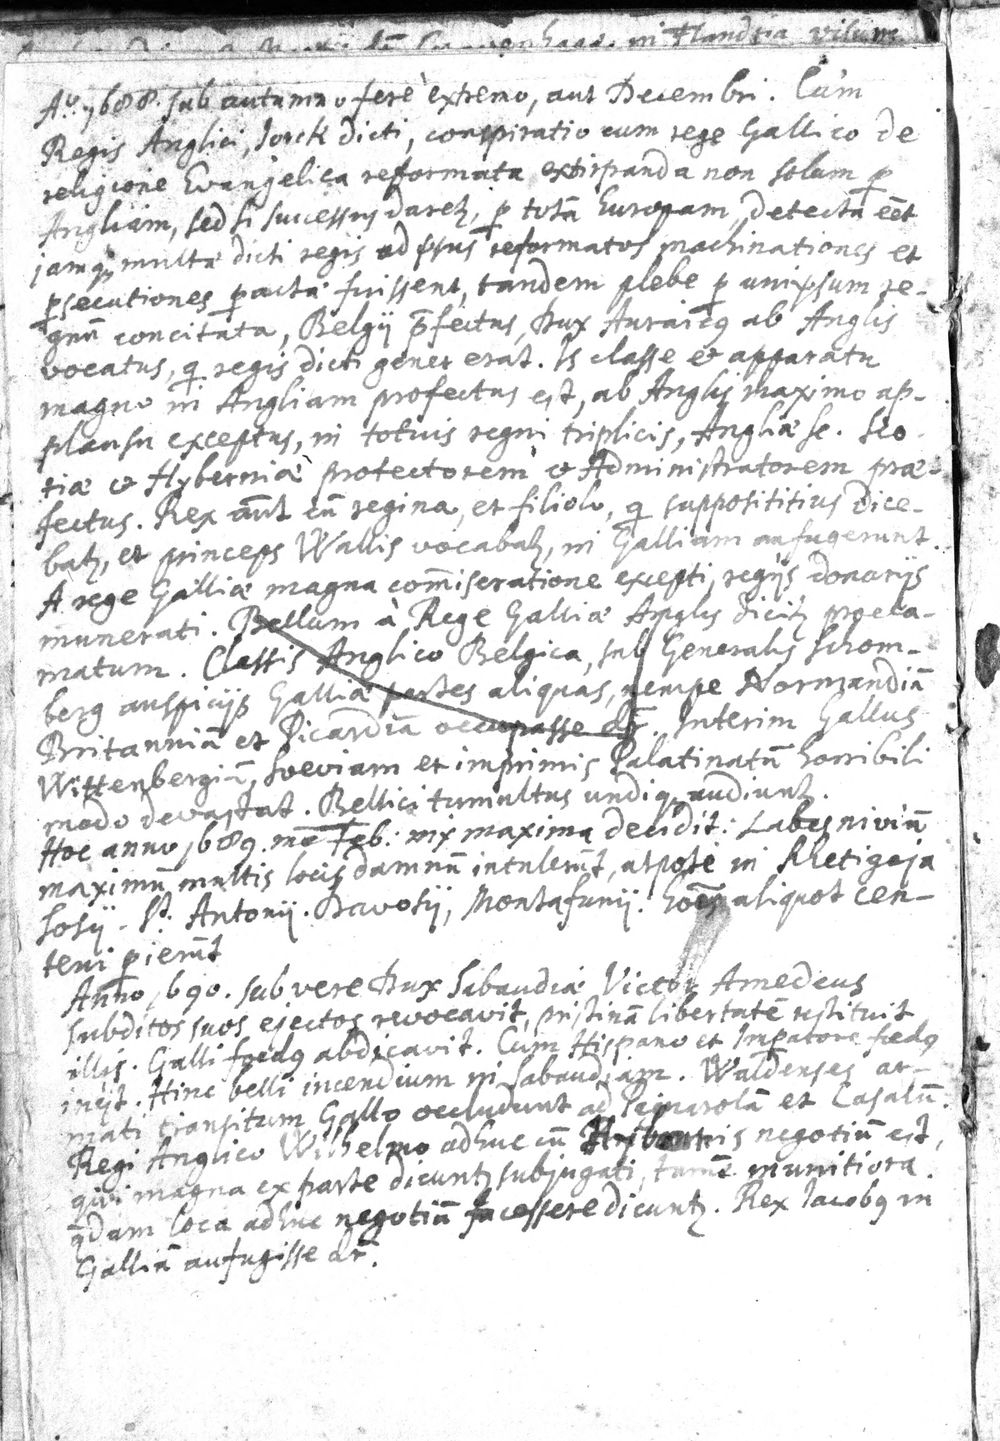 in Flandria visum
Aº. 1688. sub autumno ferè extremo, aut Decembri. Cùm
Regis Anglici, Jorck dicti, conspiratio cum rege Gallico de
religione Evangelica reformata extirpanda non solum p
Angliam, sed si successus daretʒ, p totā Europam, detecta eēt
jamqʒ multæ dicti regis adpsus reformatos machinationes et
psecutiones pactæ fuissent, tandem plebe p unipsum re-
gnū concitata, Belgij p̄fectus, Dux Auraicq ab Anglis
vocatus, q regis dicti gener erat. Is classe & apparatu
magno in Angliam profectus est, ab Anglis maximo ap-
plausu exceptus, in totius regni triplicis, Angliæ sc. Sco-
tiæ & Hyberniæ protectorem & Administratorem præ-
fectus. Rex aūt cū regina, et filiolo, q suppotititius dice-
batʒ, et princeps Wallis vocabatʒ, in Galliam aufugerunt.
A rege Galliæ magna com̄iseratione excepti, regijs donarijs
munerati. Bellum à Rege Galliæ Anglis dicitʒ procla-
matum. Classis Anglico Belgica, sub Generalis Schom-
berg auspicijs Galliæ partes aliquas, nempe Normandiā
Britanniā et Picardiā occupasse dr̄. Interim Gallus
Wittenbergiā, Sveviam et imprimis Palatinatū horribili
modo devastat. Bellici tumultus undiqʒ audiuntʒ.
Hoc anno 1689. me Feb: nix maxima decidit: Labes niviū
maximū multis locis damnū intulerūt, utpote in Rhetigoja
Sosij - St. Antonij. Davosij, Montafunij. hoēs aliquot cen-
teni pierūt
Anno 1690. sub vere Dux Sabaudiæ Victor Amedeus
subditos suos ejectos revocavit, pristinā libertatē restituit
illis. Galli foedq abdicavit. Cum Hispano et Impatore foedq
inijt. Hinc belli incendium in Sabaudiam. Waldenses ar-
mati transitum Gallo occludunt ad Peinarolā et Casalū.
Regi Anglico Wilhelmo adhuc cū Hybernis negotiū est,
qui magna ex parte dicuntʒ subjugati, tamē munitiora
qdam loca adhuc negotiū facessere dicuntʒ. Rex Iacobq in
Galliā aufugisse dr̄.